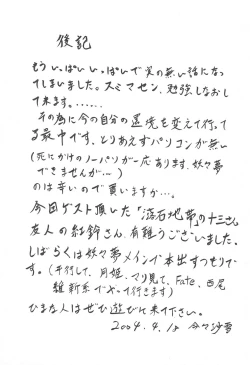 後記
もういっぱいいっぱいで実の無い話になっ
てしまいました。スミマセン、勉強しなおし
て来ます。……
その為に今の自分の環境を変えて行って
る最中です、とりあえずパソコンが無い
(死にかけのノーパソが一応あります、妖々夢
できませんが…)
のは辛いので買いますか…。
今回ゲスト頂いた「滋石地帯」の十三さん
友人の紅鈴さん、有難うございました。
しばらくは妖々夢メインで本出すつもりで
す。(平行して、月姫、マリ見て、Fate、西尾
維新系でやって行きます)
ひまな人はぜひ遊びに来て下さい。
2004.4.18